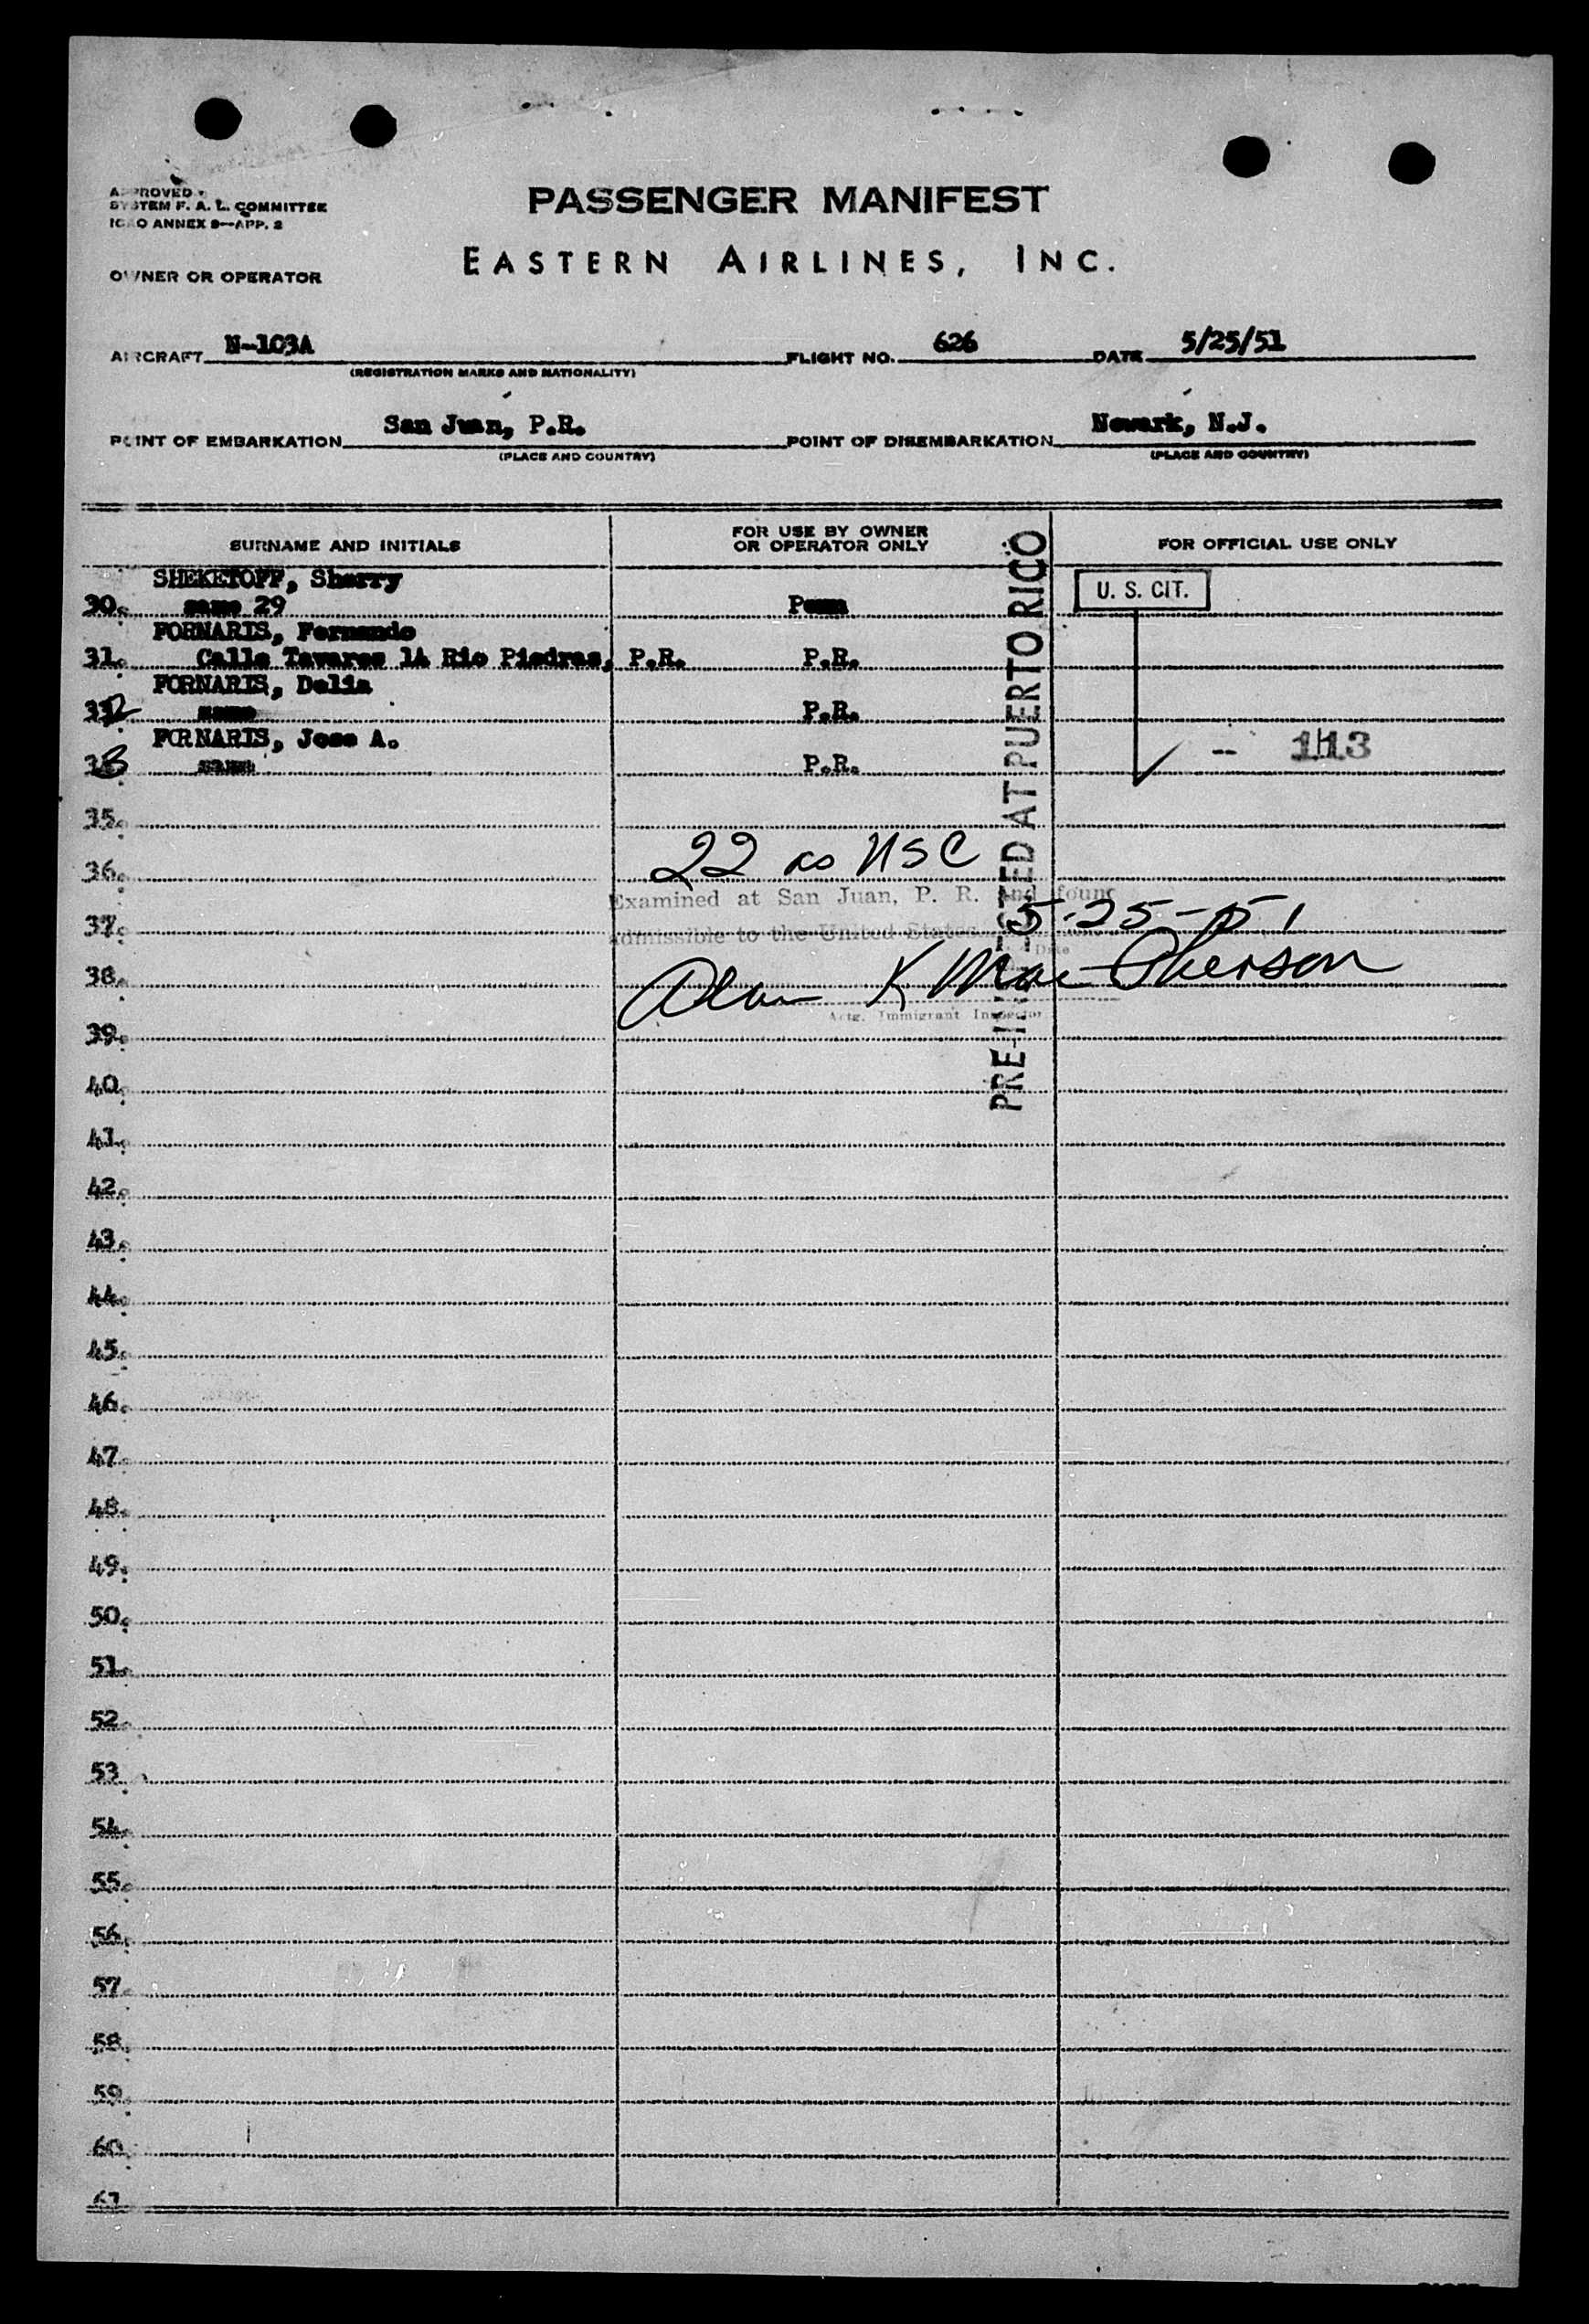 APPROVED
SYSTEM F. A. L. COMMITTEE
ICAO ANNEX 9—APP. 2
PASSENGER MANIFEST
EASTERN AIRLINES, INC.
OWNER OR OPERATOR
AIRCRAFT N-103A FLIGHT NO. 626 DATE 5/25/51
(REGISTRATION MARKS AND NATIONALITY)
POINT OF EMBARKATION San Juan, P.R. POINT OF DISEMBARKATION Newark, N.J.
(PLACE AND COUNTRY) (PLACE AND COUNTRY)
SURNAME AND INITIALS FOR USE BY OWNER OR OPERATOR ONLY FOR OFFICIAL USE ONLY
SHEKETOFF, Sherry
30. same 29 U. S. CIT.
FORNARIS, Fernando
31. Calle Tavares 1A Rio Piedras, P.R. P.R.
FORNARIS, Delia
32 same P.R.
FORNARIS, Jose A.
33 same P.R. -- 113
PRE-INSPECTED AT PUERTO RICO
35.
36. 22 as USC
Examined at San Juan, P. R. and found
37. admissible to the United States 5-25-51
Date
38. Alan K MacPherson
Actg. Immigrant Inspector
39.
40.
41.
42.
43.
44.
45.
46.
47.
48.
49.
50.
51.
52.
53.
54.
55.
56.
57.
58.
59.
60.
61